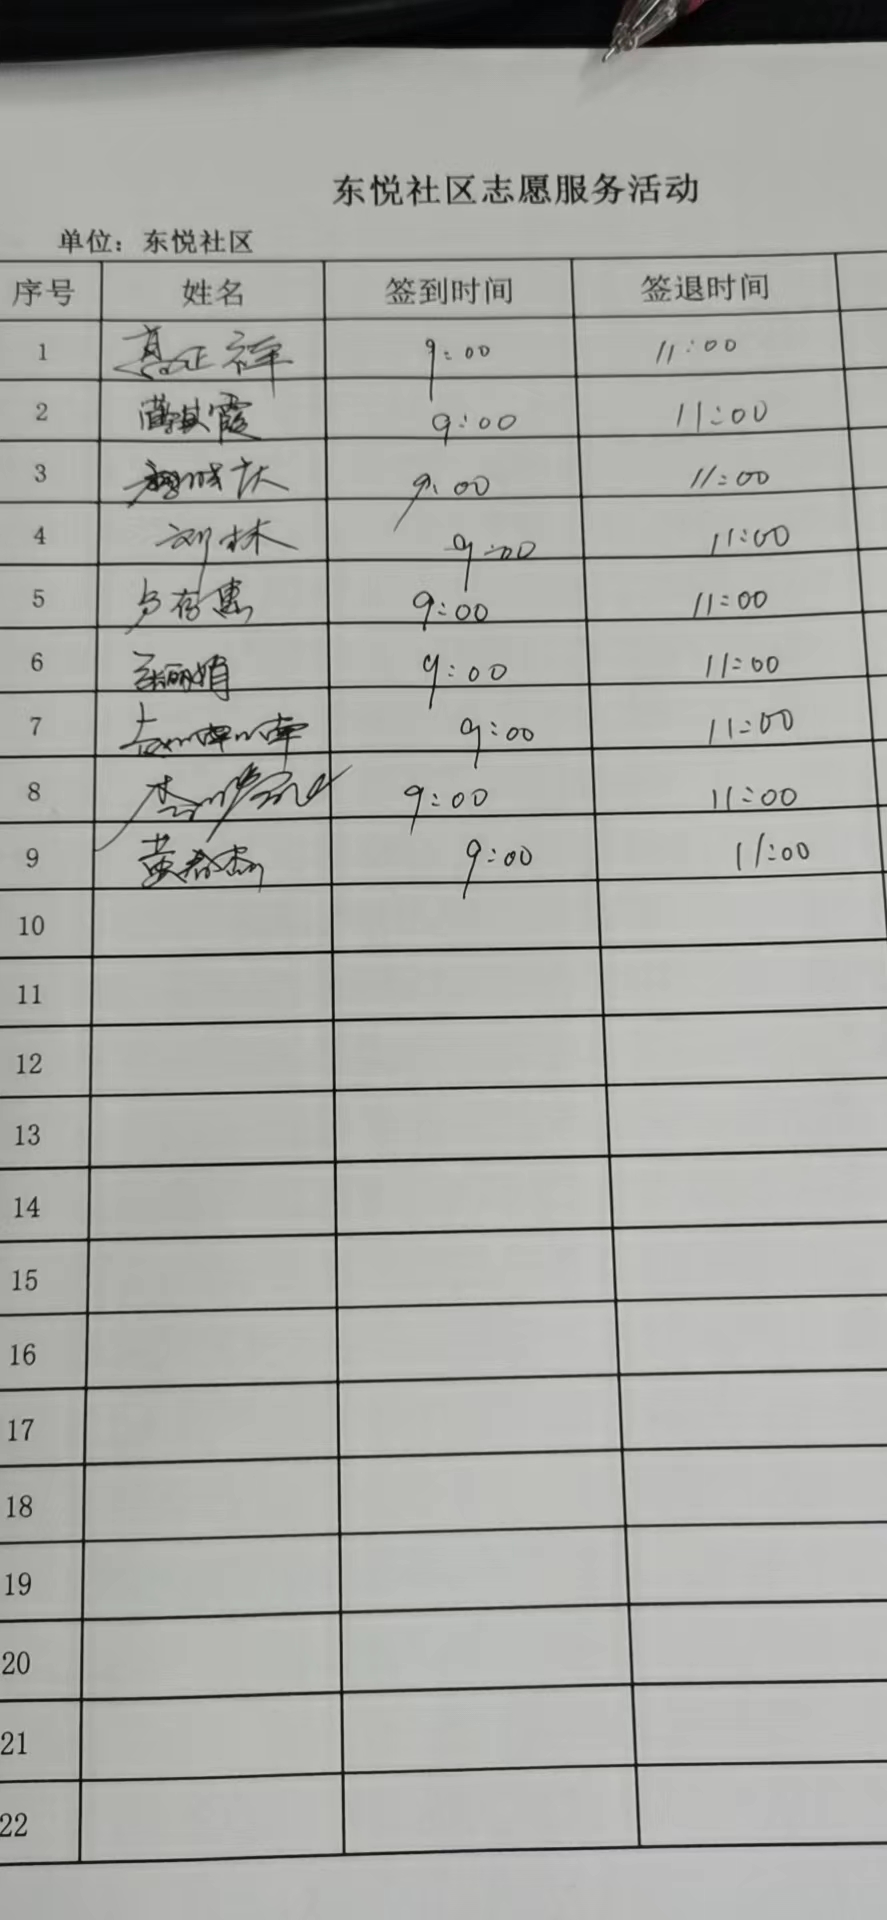 东悦社区志愿服务活动
单位：东悦社区
序号 姓名 签到时间 签退时间
1 高正祥 9:00 11:00
2 霞 9:00 11:00
3 9:00 11:00
4 刘林 9:00 11:00
5 卢存惠 9:00 11:00
6 张丽娟 9:00 11:00
7 9:00 11:00
8 李 9:00 11:00
9 黄春杰 9:00 11:00
10
11
12
13
14
15
16
17
18
19
20
21
22